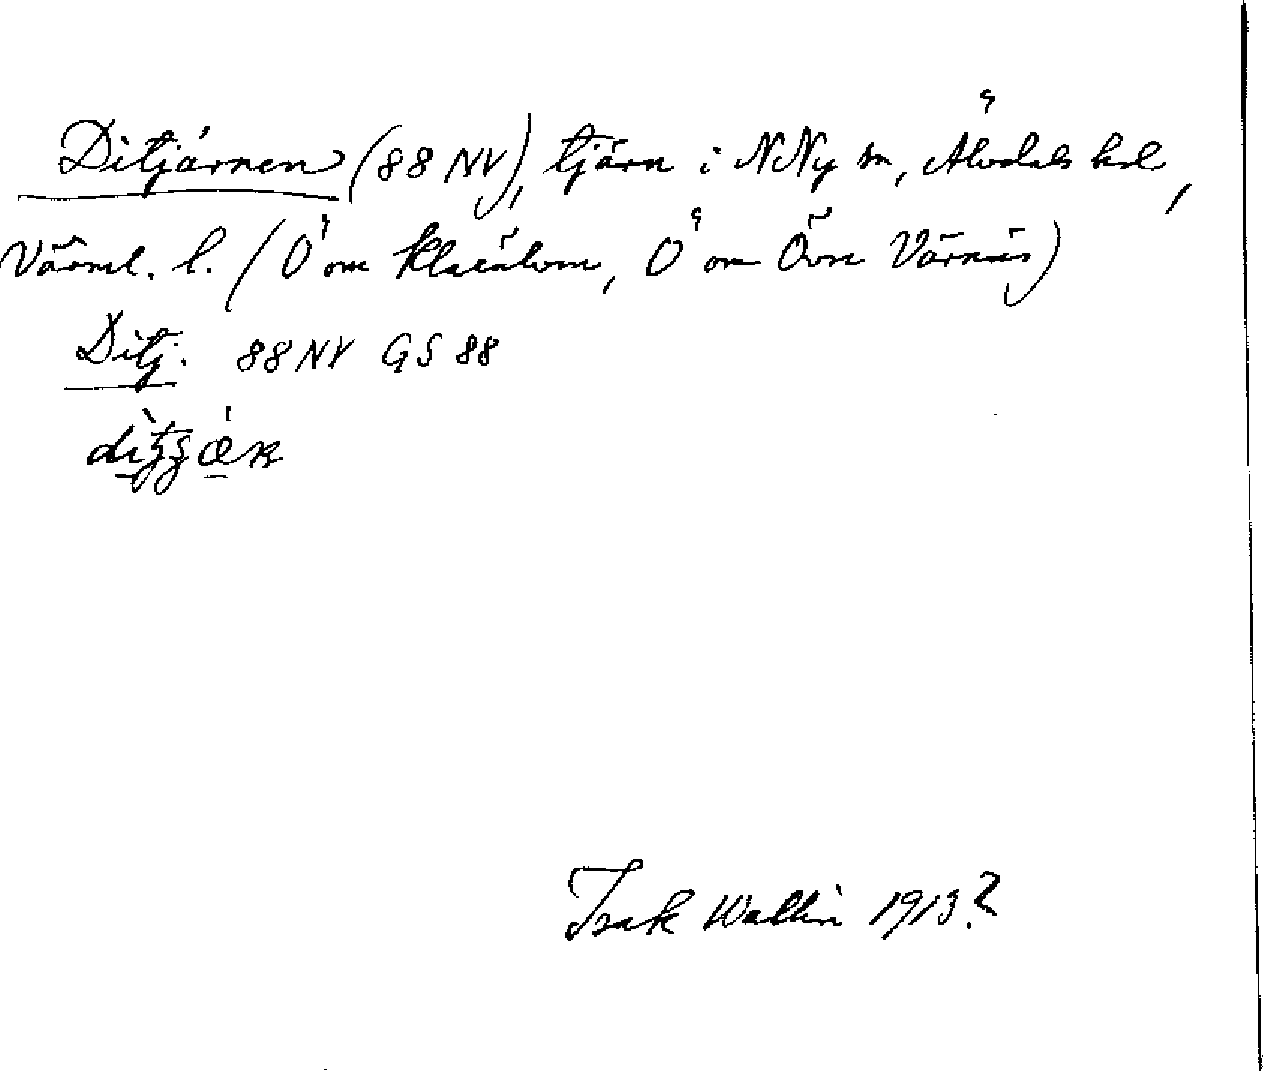 Ditjärnen (88 NV), tjärn i NNy sn, Älvdals hd,
Värml. l. (O om Klarälven, O om Övre Värnäs)
Ditj. 88 NV GS 88
Isak Wallin 1913?